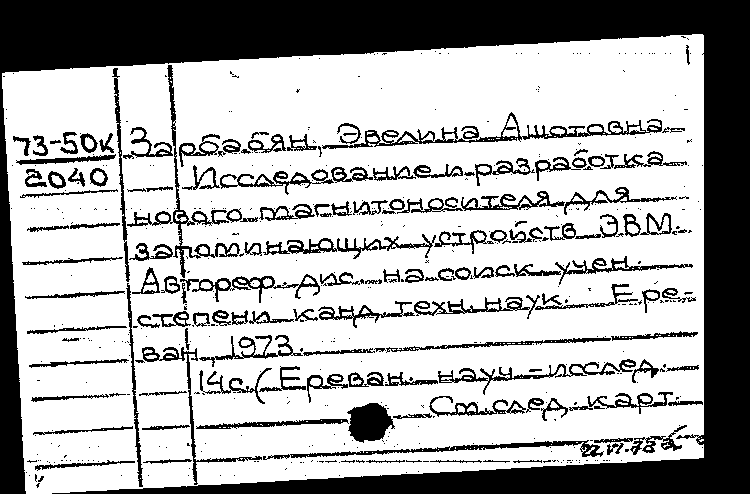 73-50к Зарбабян, Эвелина Ашотовна
2040 Исследование и разработка
нового магнитоносителя для
запоминающих устройств ЭВМ.
Автореф. дис. на соиск. учен.
степени канд. техн. наук. Ере-
ван, 1973.
14 с. (Ереван. науч.-исслед.
См. след. карт.